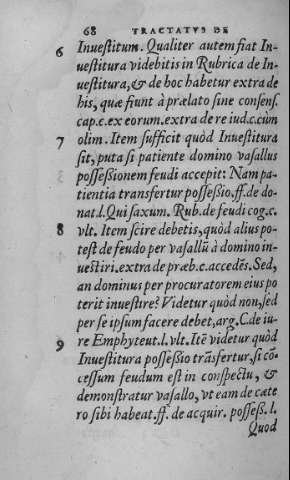 68 TRACTATVS DE
6 Inuestitum. Qualiter autem fiat In-
uestitura videbitis in Rubrica de In-
uestitura, & de hoc habetur extra de
his, quæ fiunt à prælato sine consens.
cap. c. ex eorum. extra de re iud. c. cùm
7 olim. Item sufficit quòd Inuestitura
sit, puta si patiente domino vasallus
possessionem feudi accepit: Nam pa-
tientia transfertur possessio. ff. de do-
nat. l. Qui saxum. Rub. de feudi cog. c.
8 vlt. Item scire debetis, quòd alius po-
test de feudo per vasallũ à domino in-
uestiri. extra de præb. c. accedēs. Sed,
an dominus per procuratorem eius po
terit inuestire? Videtur quòd non, sed
per se ipsum facere debet, arg. C. de iu-
re Emphyteut. l. vlt. Itē videtur quòd
9 Inuestitura possessio trāsfertur, si cō-
cessum feudum est in conspectu, &
demonstratur vasallo, vt eam de cate
ro sibi habeat. ff. de acquir. possess. l.
Quod